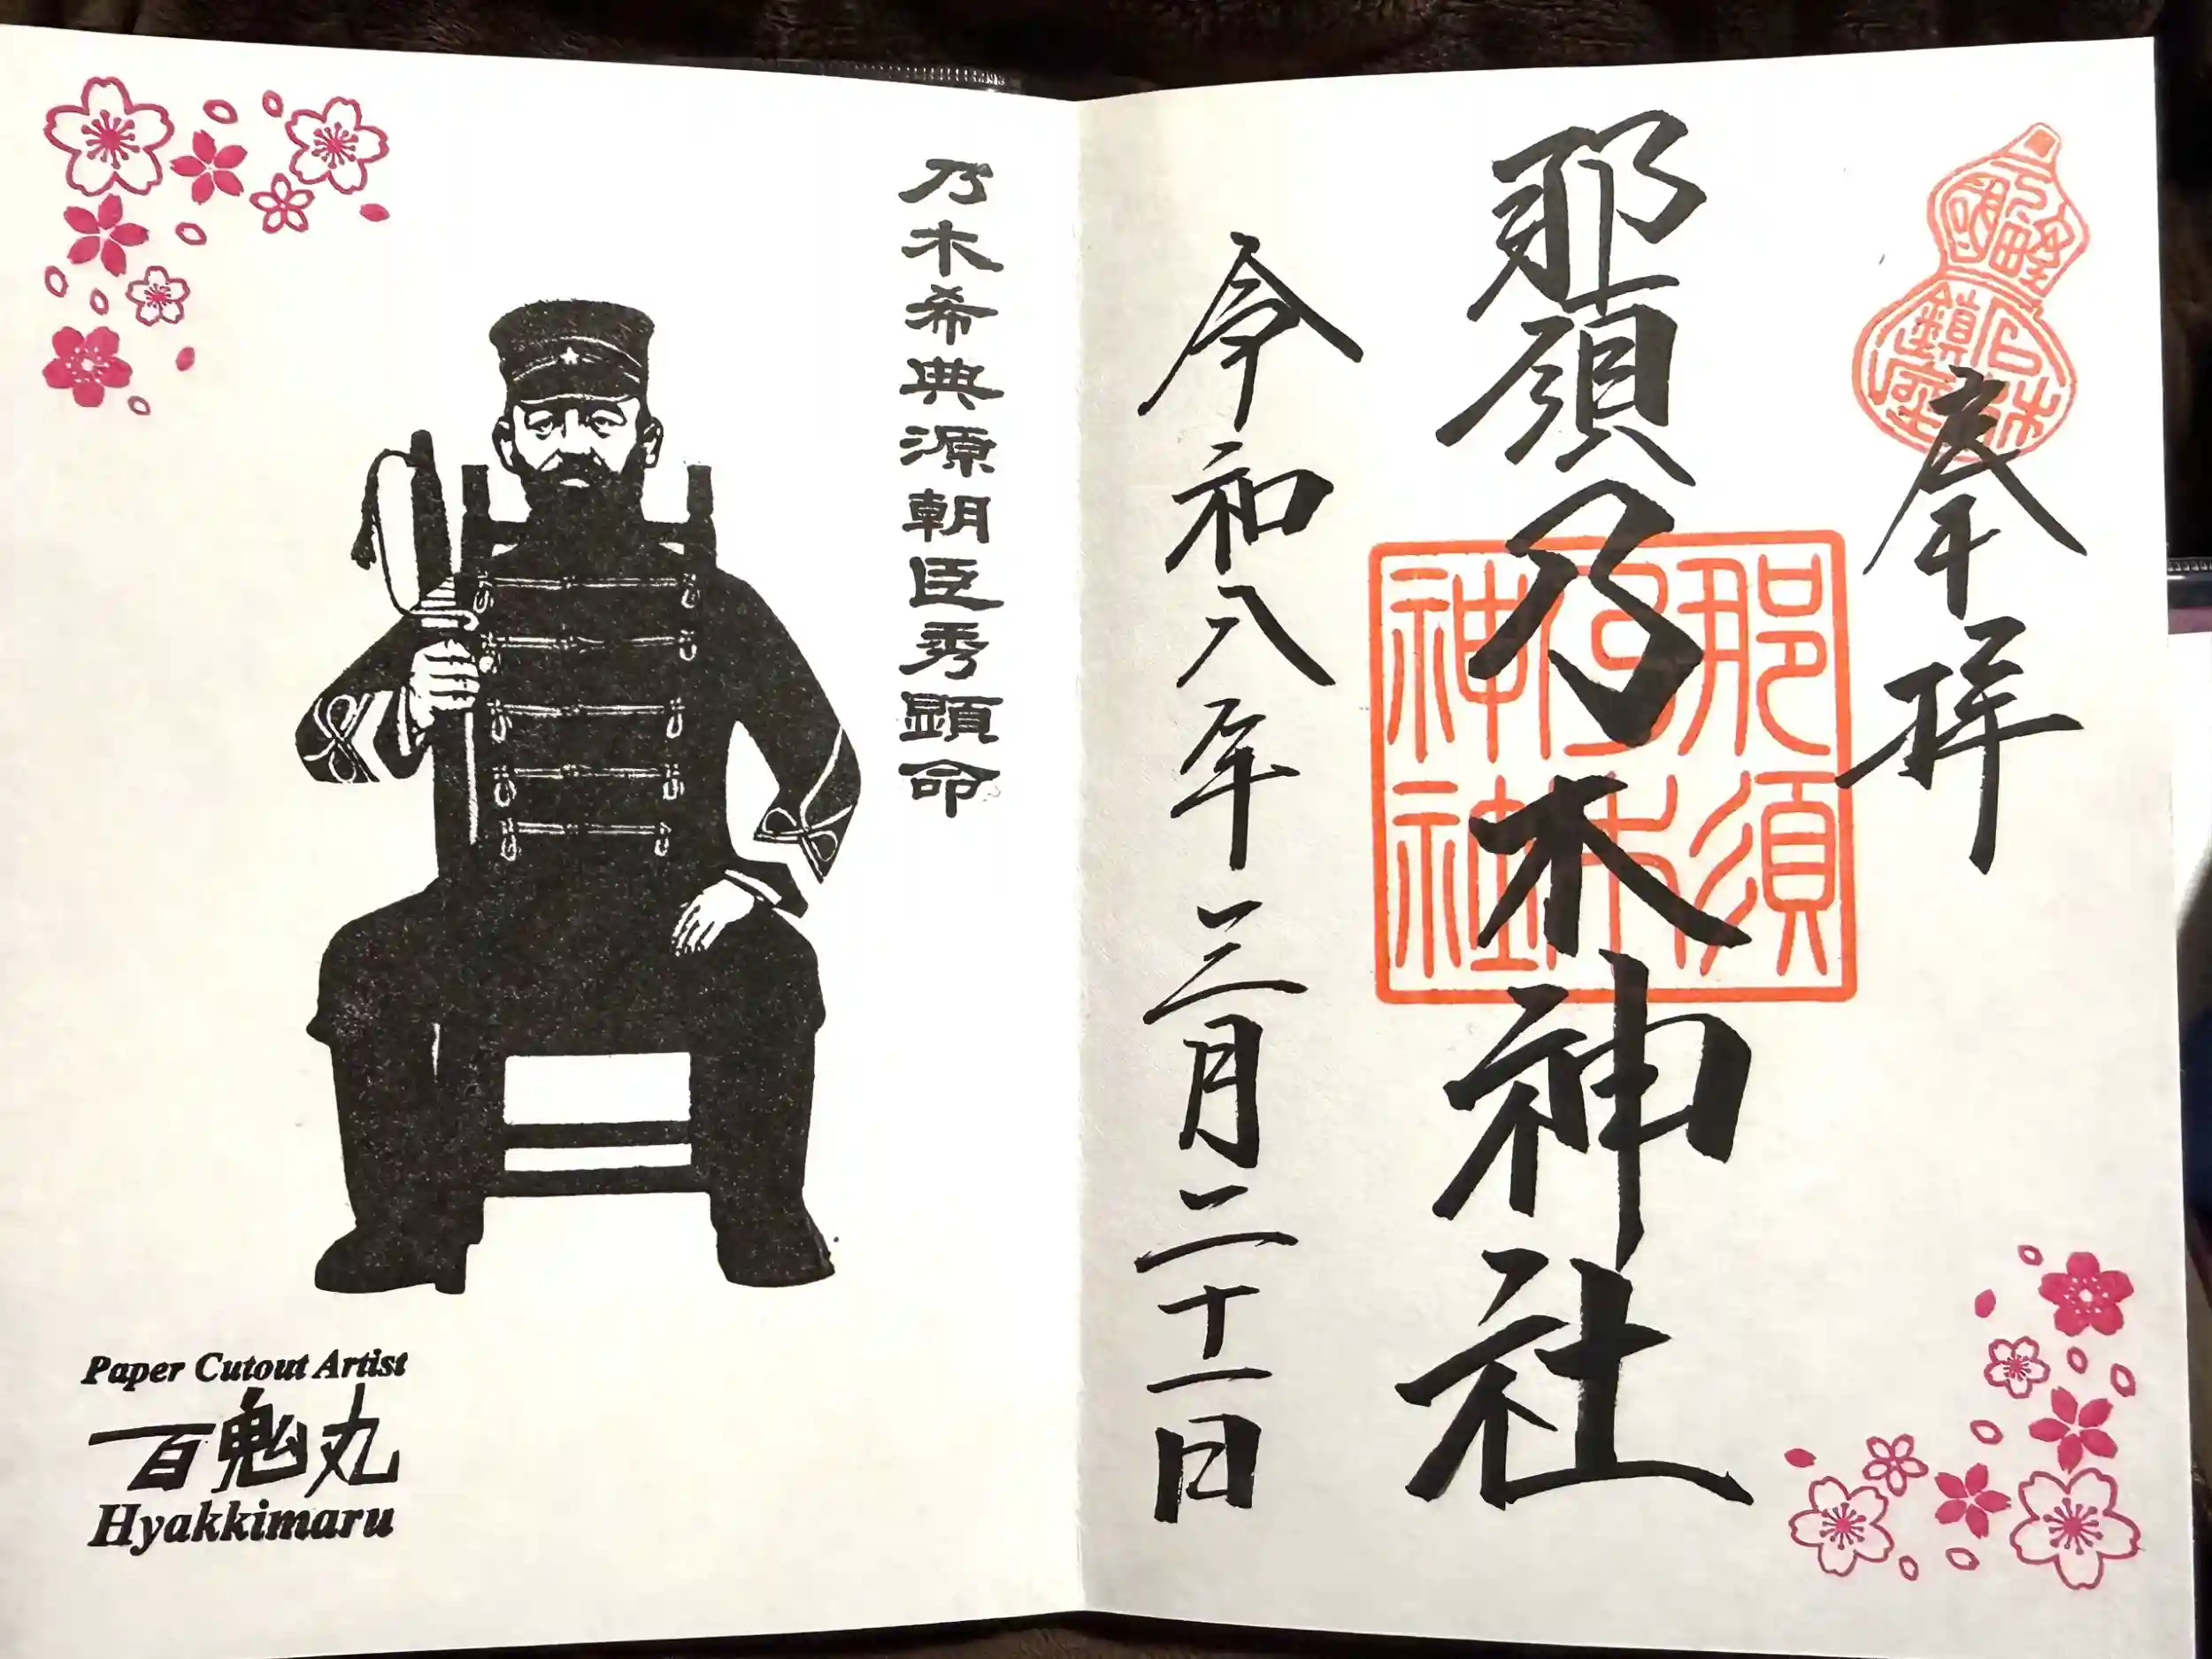 奉拝
石林
鎮座
那須乃木神社
那須
乃木
神社
令和八年三月二十一日
乃木希典源朝臣秀顕命
Paper Cutout Artist
百鬼丸
Hyakkimaru